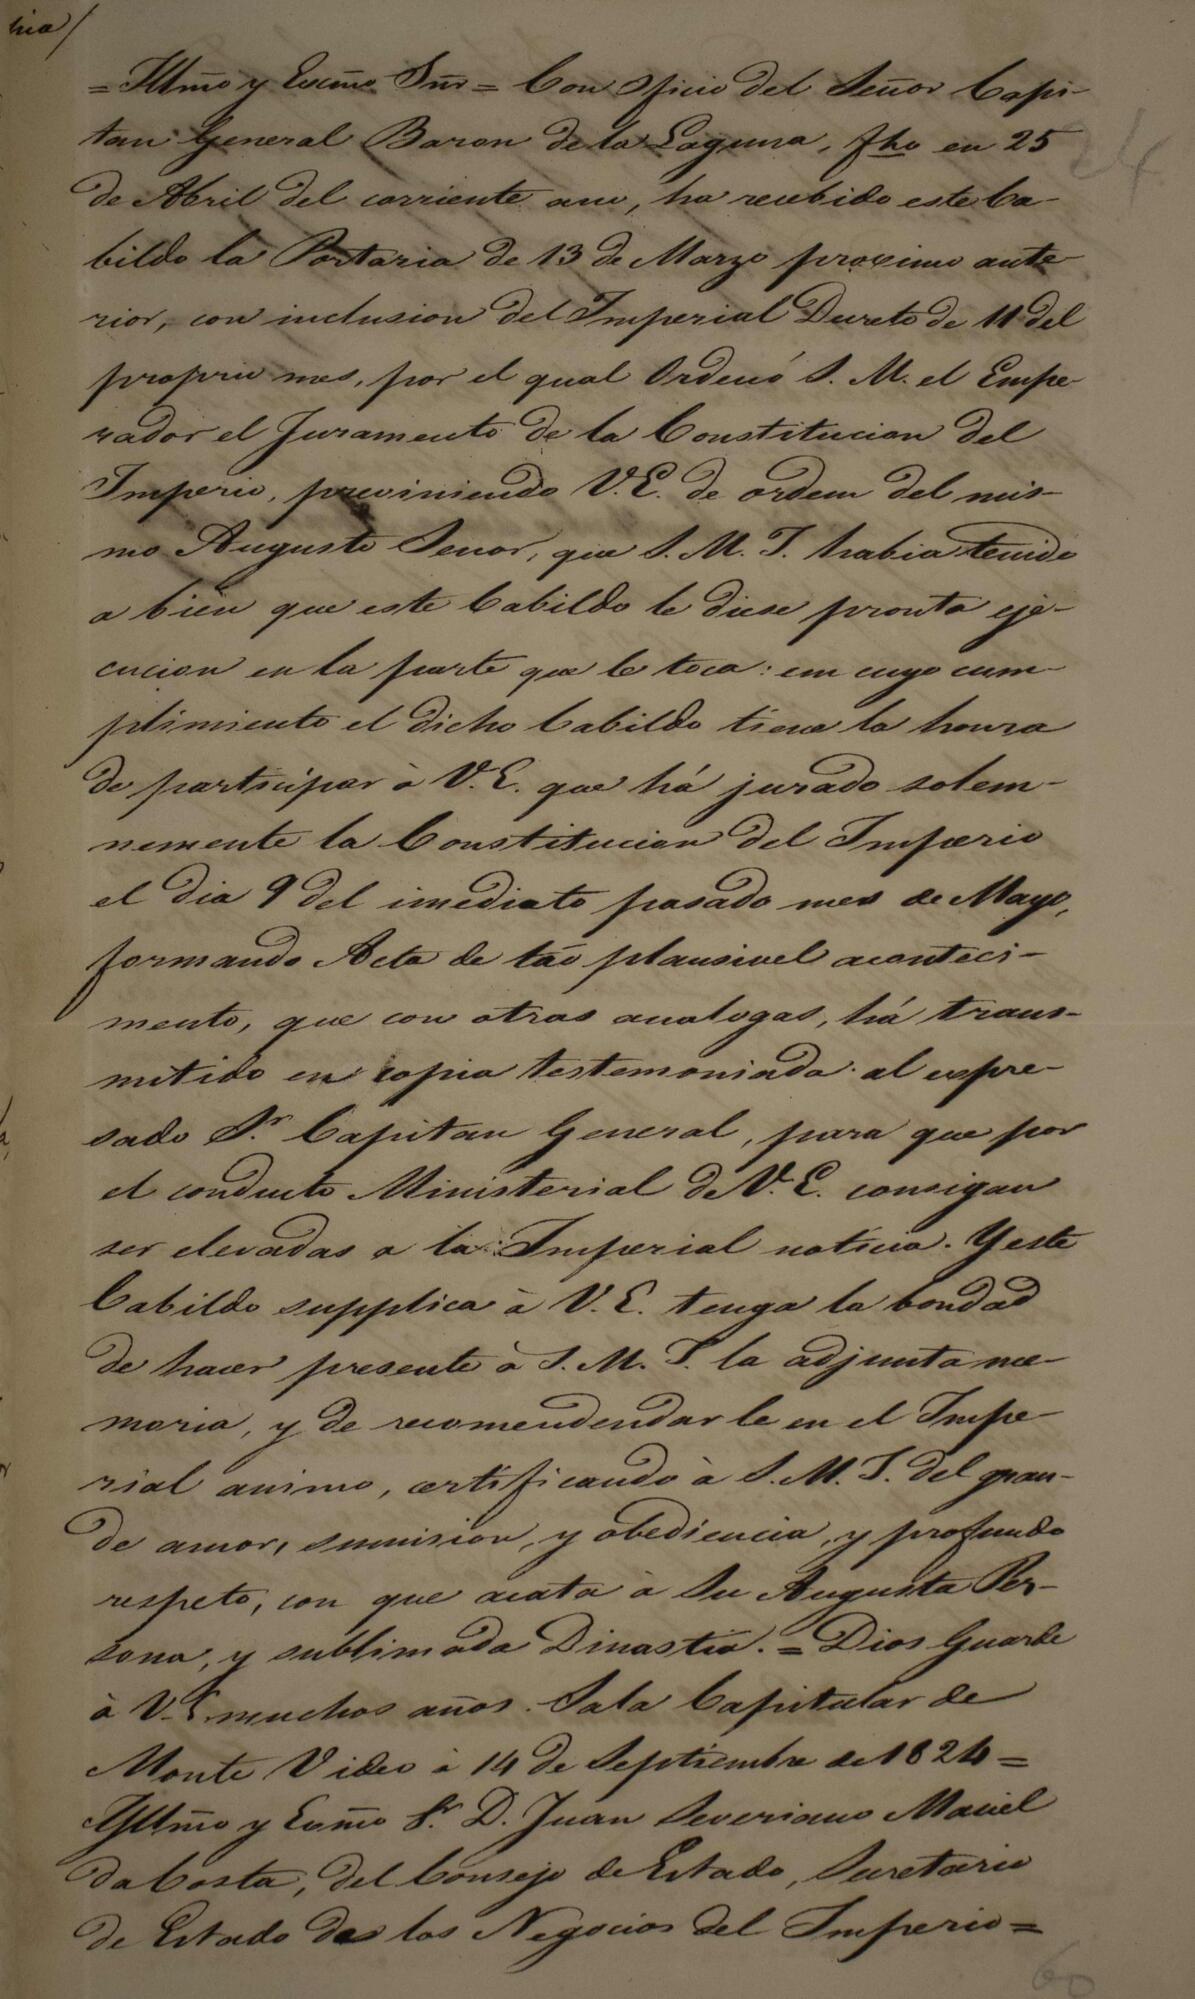 hia/
24
= Illm̃o y Excm̃o Sñr = Con oficio del Señor Capi-
tan General Baron de la Laguna, fho en 25
de Abril del corriente ano, ha recebido este Ca-
bildo la Portaria de 13 de Marzo proximo ante
rior, con inclusion del Imperial Decreto de 11 del
proprio mes, por el qual Ordenó S. M. el Empe-
rador el Juramento de la Constitucion del
Imperio, previniendo V. E. de ordem del mis-
mo Augusto Senor, que S. M. I. habia tenido
a bien que este Cabildo le diese pronta eje-
cucion en la parte que le toca: em cuyo cum-
plimiento el dicho Cabildo tiene la honra
de participar à V. E. que há jurado solem-
nemente la Constitucion del Imperio
el dia 9 del imediato pasado mes de Mayo,
formando Acta de tão plausivel aconteci-
mento, que con otras analogas, há trans-
mitido en copia testemoniada al expre-
sado S.r Capitan General, para que por
el conducto Ministerial de V. E. consigan
ser elevadas a la Imperial noticia. Y este
Cabildo supplica à V. E. tenga la bondad
de hacer presente à S. M. I. la adjunta me-
moria, y de recomendendar le en el Impe-
rial animo, certificando à S. M. I. del gran-
de amor, sumision, y obediencia, y profundo
respeto, con que acata à Su Augusta Per-
sona, y sublimada Dinastia. = Dios Guarde
à V. E. muchos años. Sala Capitular de
Monte Video à 14 de Septiembre de 1824 =
Illm̃o y Exm̃o S.r D. Juan Severiano Maciel
da Costa, del Consejo de Estado, Secretario
de Estado de los Negocios del Imperio =
60